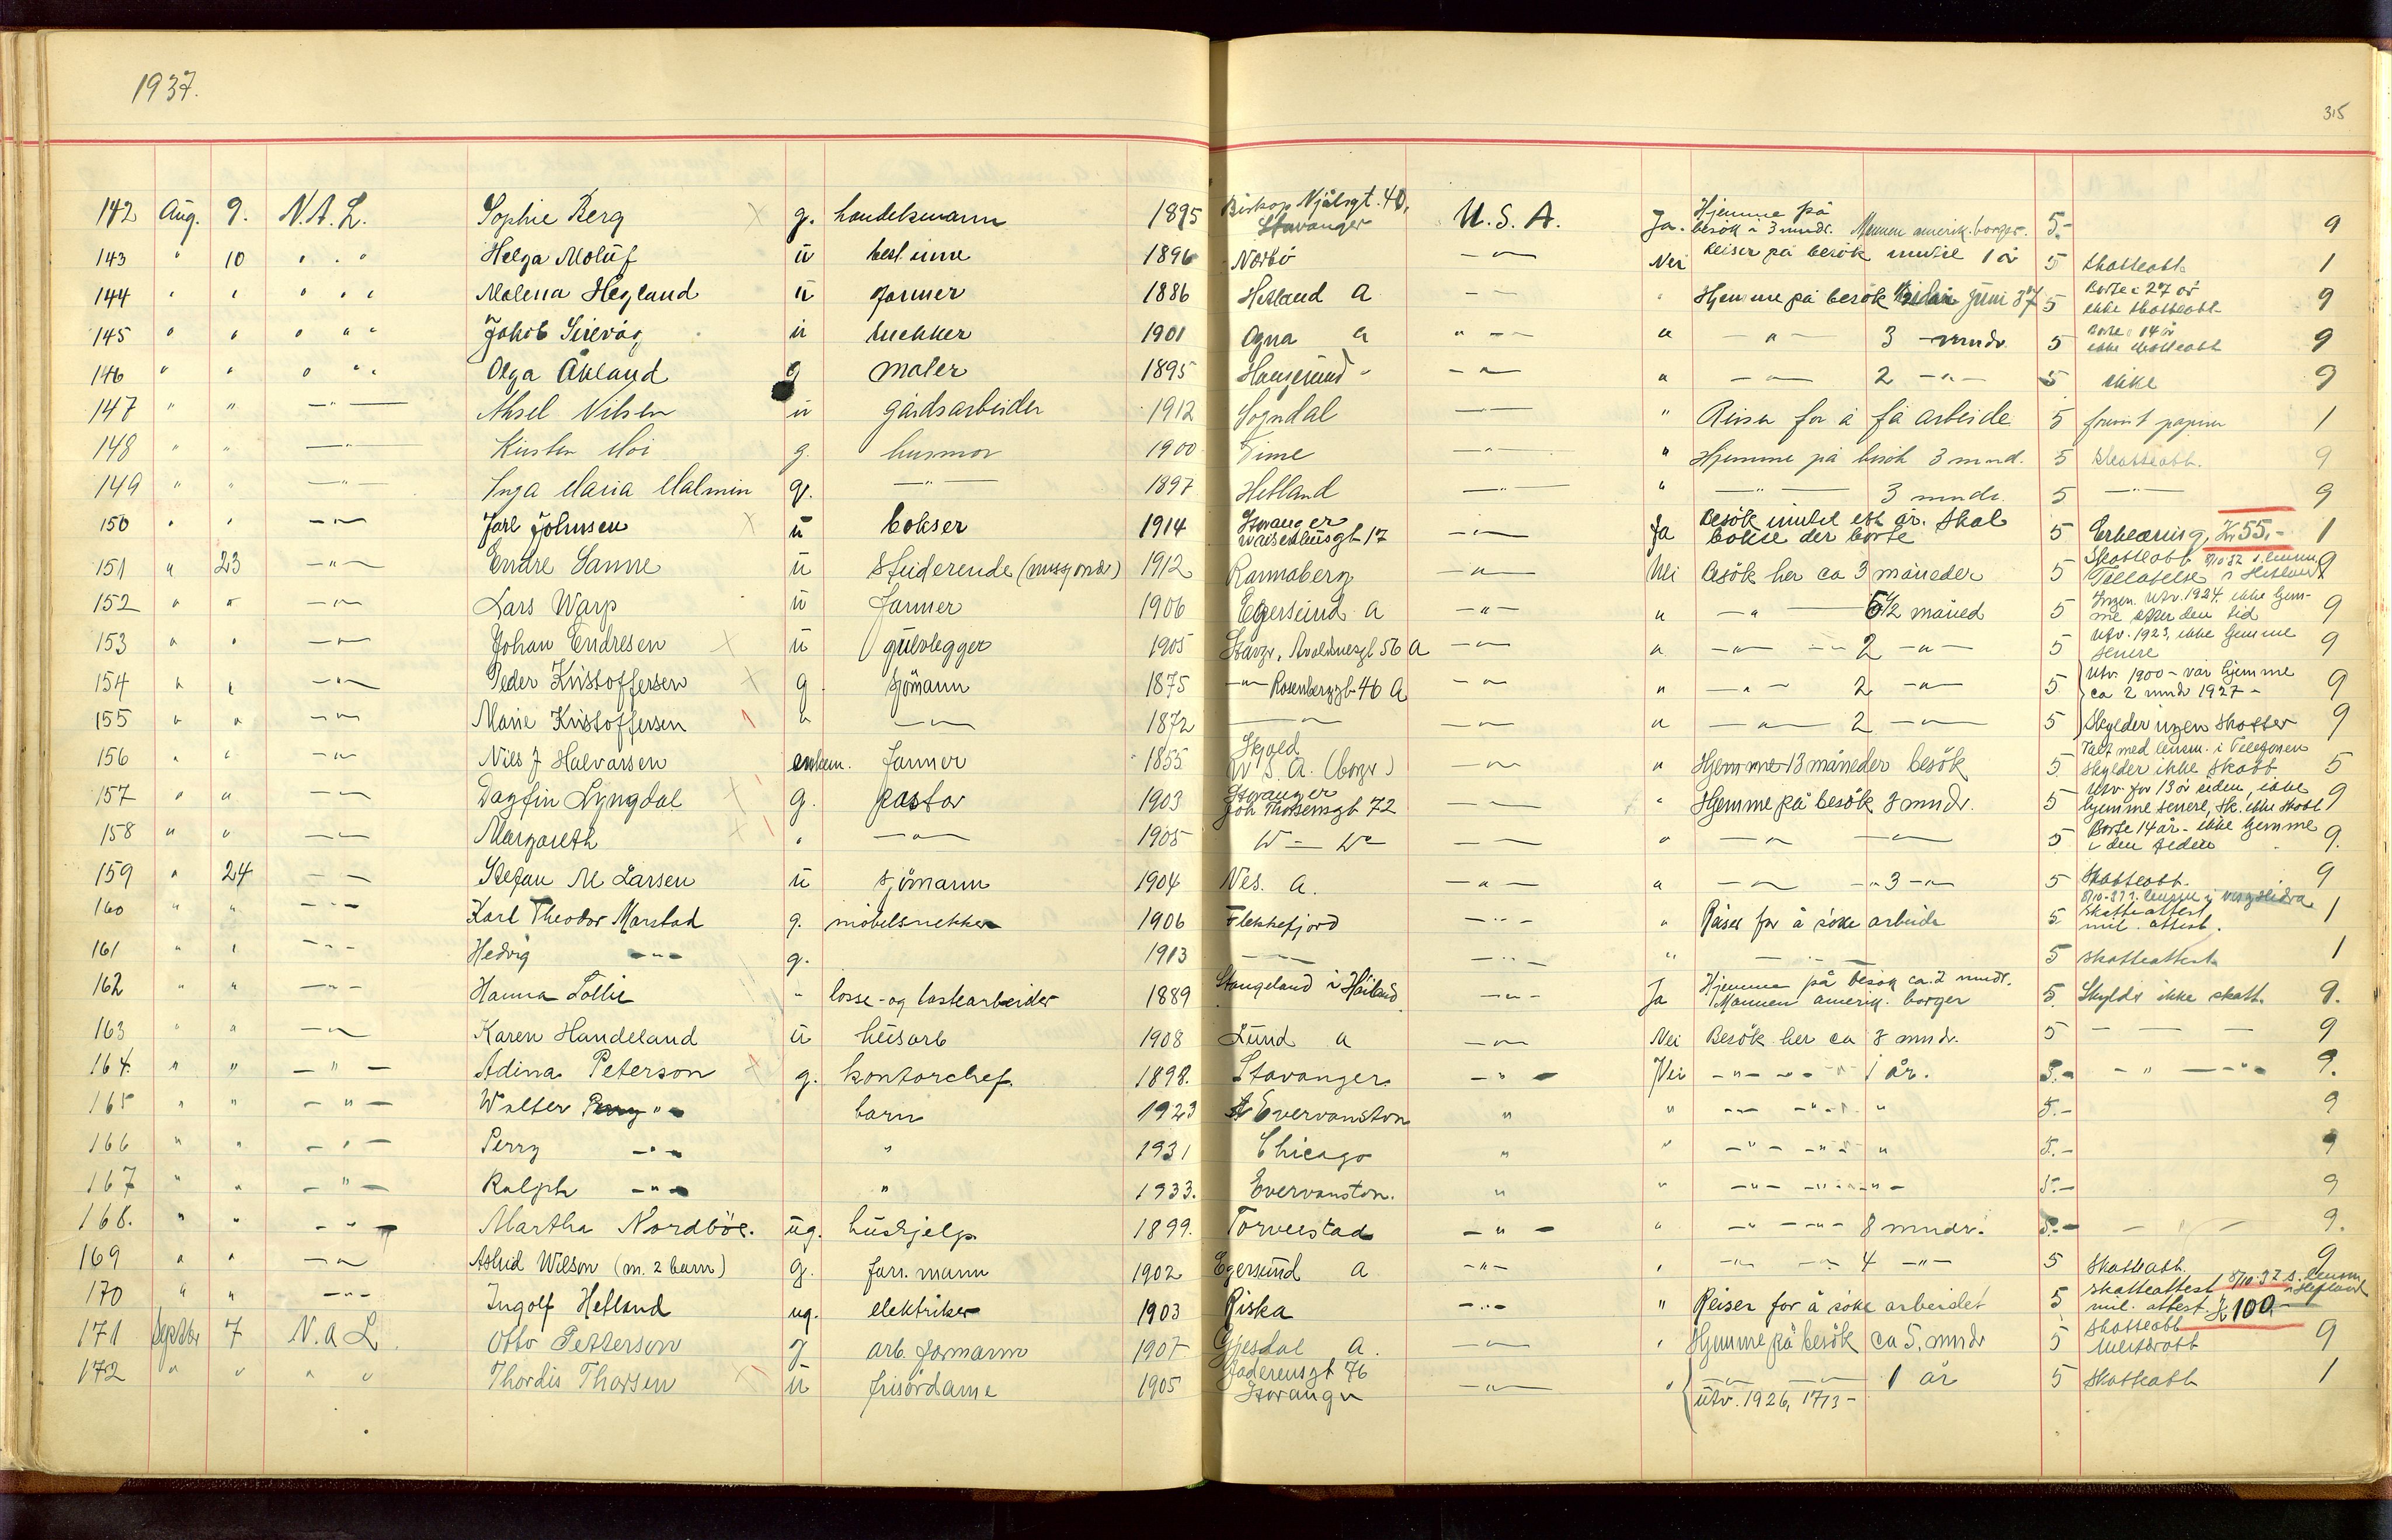 1937.
315
142 Aug. 9. N.A.L. Sophie Berg g. handelsmann 1895 Biskop Njålsgt. 40, Stavanger U.S.A. Ja. Hjemme på besök i 3 mndr. Mannen amerik. borger. 5.- 9
143 " 10 " " " Helga Moluf ü best.inne 1896 Narbö — " — Nei Reiser på besök inntil 1 år 5 skatteatt. 1
144 " " " " " Malena Hegland ü farmer 1886 Hetland A — " — " Hjemme på besök siden juni 37 5 Borte i 27 år ikke skatteatt. 9
145 " " " " " Jakob Sirevåg ü snekker 1901 Ogna a " — — " — " — 3 mndr. 5 Borte i 14 år ikke skatteatt 9
146 " " " " " Olga Åkland g maler 1895 Haugesund " — " — " — " — 2 — " — 5 ikke 9
147 " " — " — Aksel Nilsen ü gårdsarbeider 1912 Sogndal — " — " Reiser for å få arbeide 5 fremv't papirer 1
148 " " — " — Kirsten Moi g. husmor 1900 Time — " — " Hjemme på besök 3 mnd. 5 Skatteatt. 9
149 " " — " — Inga Maria Malmin g. — " — 1897 Hetland — " — " — " — 3 mndr. 5 — " — 9
150 " " — " — Jarl Johnsen ü bokser 1914 Stavanger Vaisenhusgt 17 — " — Ja Besök inntil ett år. Skal bokse der borte 5 Erklæring, Kr 55,- 1
151 " 23 — " — Endre Sanne ü Studerende (misjonær) 1912 Rannaberg — " — Nei Besök her ca 3 måneder 5 Skatteatt 8/10-37 s. lensm. Tillatelse i Hetland 9
152 " " — " — Lars Warp ü Farmer 1906 Egersund a — " — " — " — 5 1/2 måned 5 Ingen. Utv. 1924. ikke hjemme etter den tid 9
153 " " — " — Johan Endresen ü gulvlegger 1905 Stavgr, Avaldsnesgt 56 A — " — " — " — 2 — " — 5 Utv. 1923, ikke hjemme senere 9
154 " " — " — Peder Kristoffersen g. sjömann 1875 — " — Rosenberggt 46 A — " — " — " — 2 — " — 5 Utv. 1900 - var hjemme ca 2 mndr 1927 - 9
155 " " — " — Marie Kristoffersen " — " — 1872 — " — — " — " — " — 2 — " — 5 Skylder ingen skatter 9
156 " " — " — Nils J Halvarsen enkem. Farmer 1855 Skjold U.S.A. (borgr) — " — " Hjemme 13 måneder besök 5 Talt med lensm. i Telefonen skylder ikke skatt 5
157 " " — " — Dagfin Lyngdal g. pastor 1903 Stavanger Joh Thorsensgt 72 — " — " Hjemme på besök 3 mndr. 5 Utv. for 13 år siden, ikke hjemme senere, Sk. ikke skatt 9
158 " " — " — Margareth " — " — 1905 W — W — — " — " — " — — " — 5 Borte 14 år - ikke hjemme i den tiden 9.
159 " 24 — " — Stefan M Larsen ü sjömann 1904 Nes. a. — " — " — " — — " 3 — " — 5 Skatteatt. 9
160 " " — " — Karl Theodor Marstad g. möbelsnekker 1906 Flekkefjord — " — " Reiser for å söke arbeide 5. skatteattest mil. attest. 1
161 " " — " — Hedvig — " — g. 1913 — " — — " — " — " — 5 skatteattest 1
162 " " — " — Hanna Tollie " losse- og lastearbeider 1889 Stangeland i Håland — " — Ja Hjemme på besök ca. 2 mndr. Mannen amerik. borger 5. Skyldr ikke skatt. 9.
163 " " — " — Karen Handeland ü husarb 1908 Lund a — " — Nei Besök her ca 3 mndr. 5 — — — 9
164. " " — " — Adina Peterson g. kontorchef. 1898. Stavanger — " — Nei — " — — " — 1 år. 5.- — " — — " — 9.
165 " " — " — Walter " — barn 1923 Evervanston " " — " — — " — " 5.- 9
166 " " — " — Perry — " — " 1931 Chicago " " — " — — " — " 5.- 9
167 " " — " — Ralph — " — " 1933. Evervanston. " " — " — — " — " — 5.- 9
168. " " — " — Martha Nordböe. ug. hushjelp 1899. Torvestad — " — " — " — — " — 8 mndr. 5.- — — 9.
169 " " — " — Astrid Wilson (m. 2 barn) g. farr. mann 1902 Egersund a — " — " — " — — " — 4 — " — 5 Skatteatt. 9
170 " " — " — Ingolf Hetland ug. elektriker 1903 Riska — " — " Reiser for å söke arbeidet 5 skatteattest 8/10-37 s. lensm. i Hetland mil. attest. Kr 100,-
171 Septbr 7 N.a L. Otto Petterson g arb. formann 1907 Gjesdal a. — " — " Hjemme på besök ca 5. mndr 5 skatteatt 9
172 " " " " Thordis Thorsen ü frisördame 1905 Jaderensgt 76 Stavanger — " — " — " — — " — 1 år utv. 1926, 17/3 - 5 Skatteatt 1